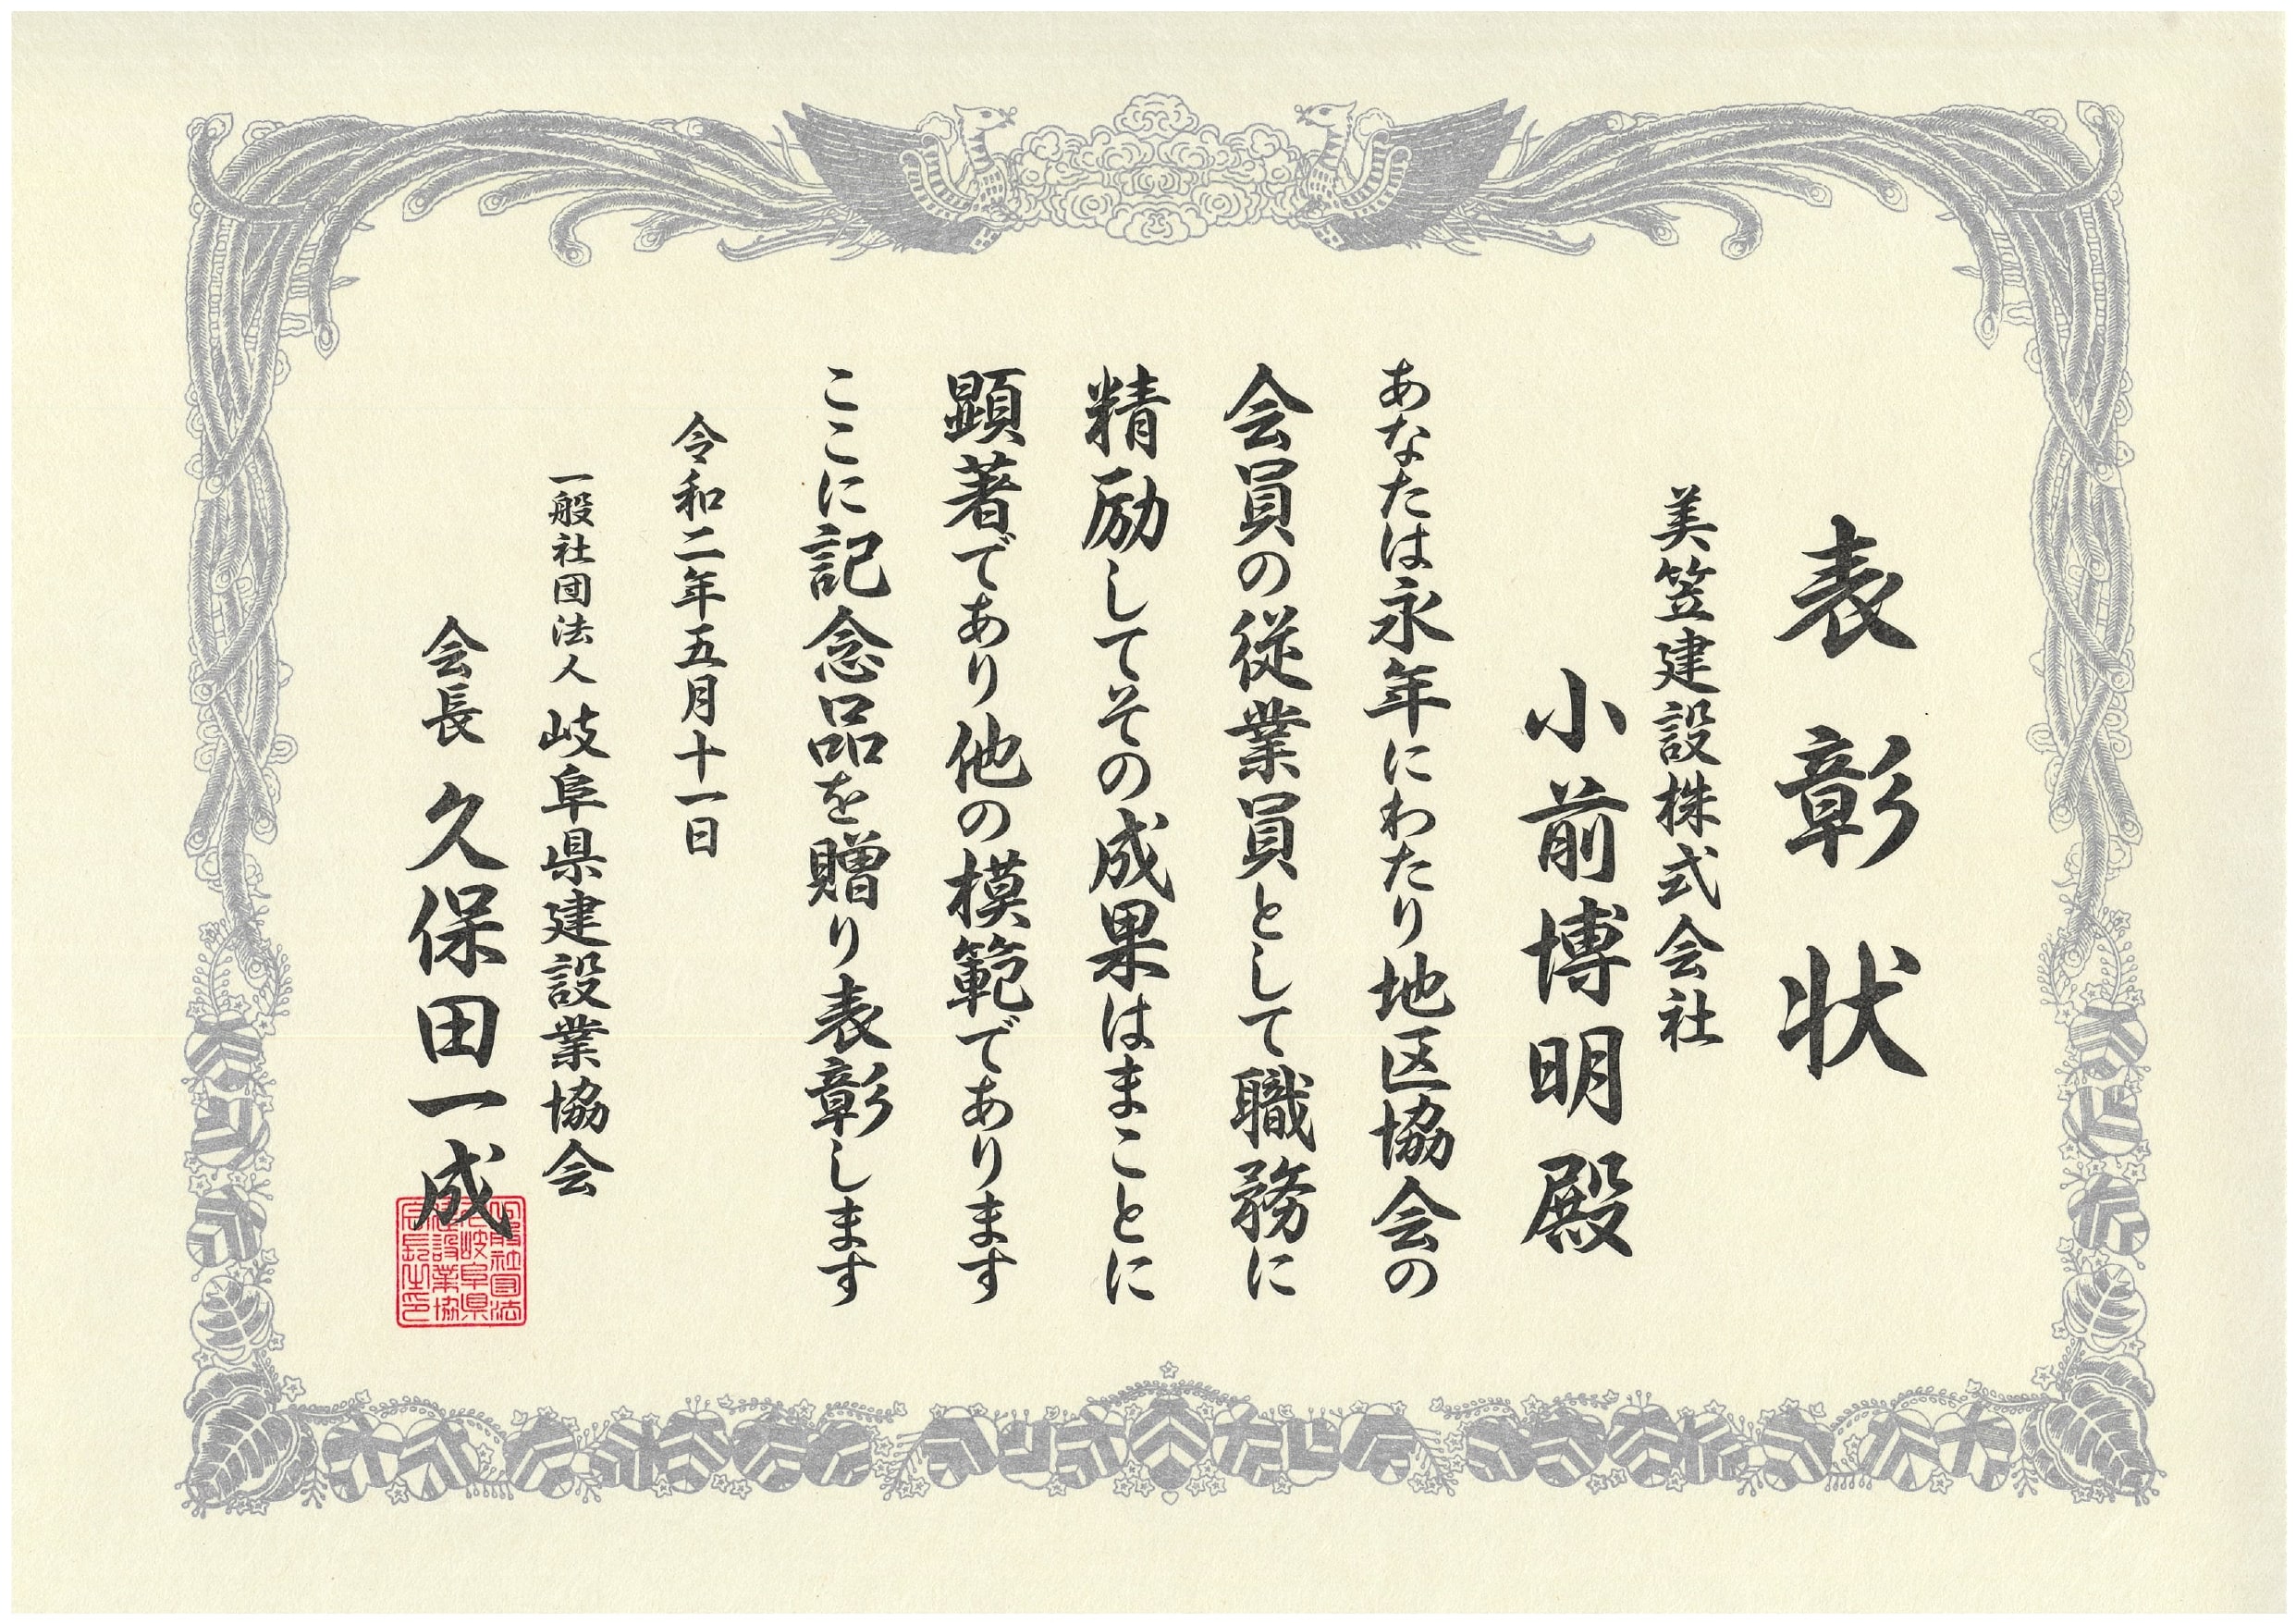 表彰状
美笠建設株式会社
小前博明殿
あなたは永年にわたり地区協会の
会員の従業員として職務に
精励してその成果はまことに
顕著であり他の模範であります
ここに記念品を贈り表彰します
令和二年五月十一日
一般社団法人 岐阜県建設業協会
会長 久保田一成